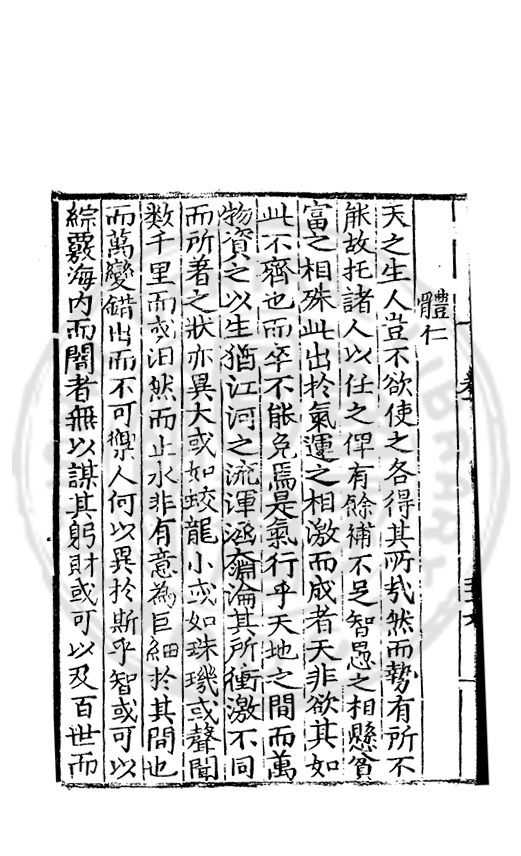 體仁
天之生人豈不欲使之各得其所哉然而勢有所不
能故托諸人以任之俾有餘補不足智愚之相懸貧
富之相殊此出於氣運之相激而成者天非欲其如
此不齊也而卒不能免焉是氣行乎天地之間而萬
物資之以生猶江河之流渾涵奫淪其所衝激不同
而所著之狀亦異大或如蛟龍小或如珠璣或聲聞
数千里而或汨然而止水非有意為巨細於其間也
而萬變錯出而不可禦人何以異於斯乎智或可以
綜覈海内而闇者無以謀其躬財或可以及百世而